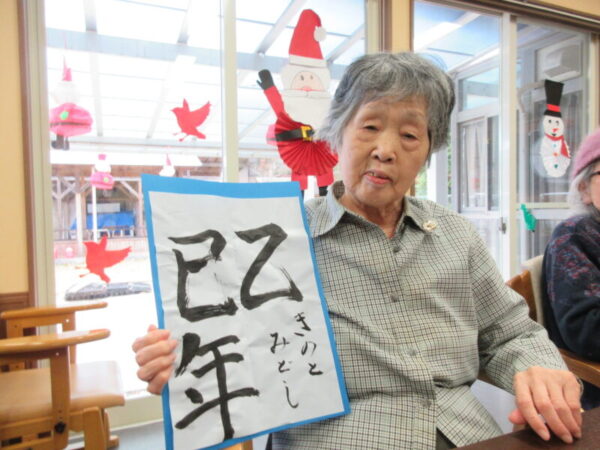 乙
巳年
きのと
みどし